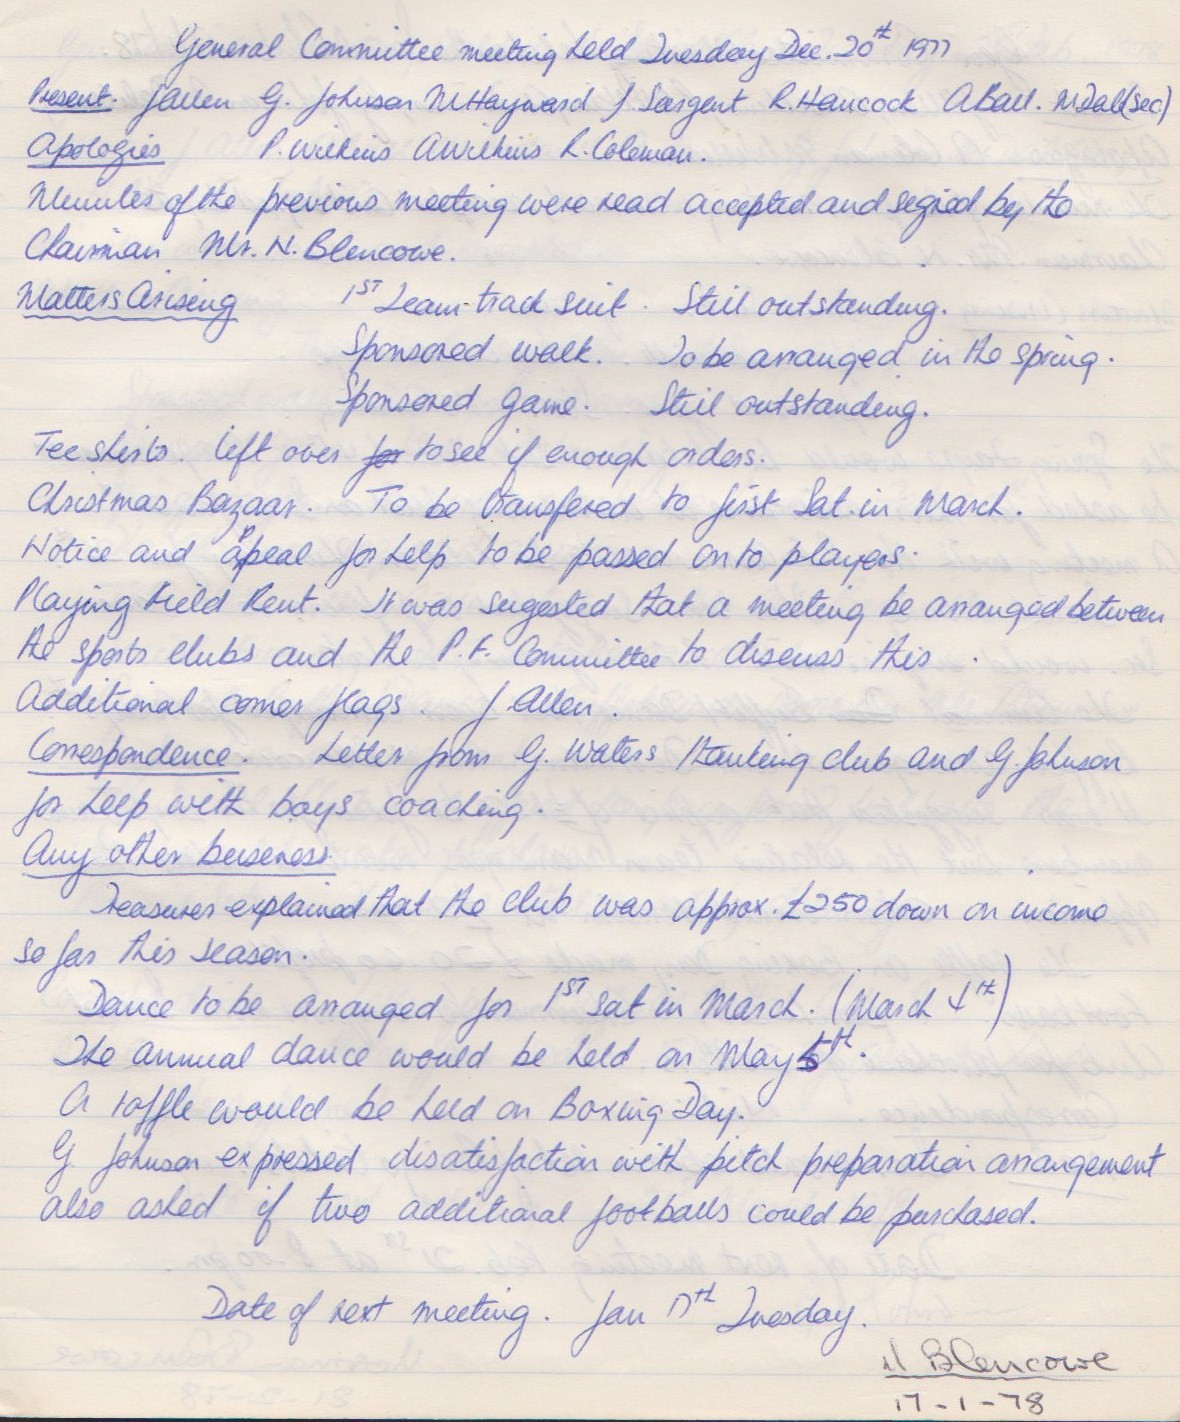 General Committee meeting held Tuesday Dec. 20th 1977
Present. J Allen G. Johnson M Hayward J Sargent R. Hancock A Ball. M Dall (Sec)
Apologies P. Wilkins A Wilkins R. Coleman.
Minutes of the previous meeting were read accepted and signed by the
Chairman Mr. N. Blencowe.
Matters Arising 1ST Team track suit. Still outstanding.
Sponsored walk. To be arranged in the spring.
Sponsored game. Still outstanding.
Tee shirts. left over for to see if enough orders.
Christmas Bazaar. To be transfered to first Sat. in March.
Notice and appeal for help to be passed onto players.
Playing Field Rent. It was sugested that a meeting be arranged between
the sports clubs and the P.F. Committee to discuss this.
Additional corner flags. J Allen.
Correspondence. Letter from G. Waters Hanking club and G. Johnson
for help with boys coaching.
Any other buseness
Treasurer explained that the club was approx. £250 down on income
so far this season.
Dance to be arranged for 1ST Sat in March. (March 4th)
The annual dance would be held on May 5th.
A raffle would be held on Boxing Day.
G Johnson expressed disatisfaction with pitch preparation arrangement
also asked if two additional footballs could be purchased.
Date of next meeting. Jan 17th Tuesday.
N Blencowe
17-1-78